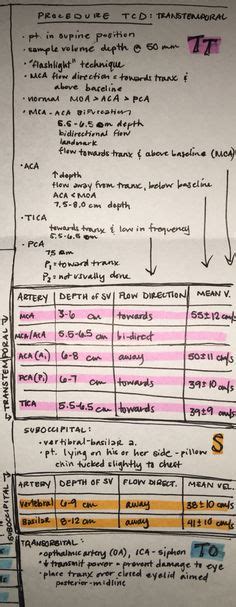 PROCEDURE TCD: TRANSTEMPORAL
• pt. in supine position
• sample volume depth @ 50 mm
TT
• "flashlight" technique
• MCA flow direction = towards tranx &
above baseline
• normal MCA > ACA > PCA
• MCA-ACA Bifurcation
5.5-6.5 cm depth
bidirectional flow
landmark
flow towards tranx & above baseline (MCA)
• ACA
↑ depth
flow away from tranx, below baseline
ACA < MCA
7.5-8.0 cm depth
• TICA
towards tranx & low in frequency
5.5-6.5 cm
• PCA
75 mm
P₁ = toward tranx
P₂ = not usually done
TRANSTEMPORAL
ARTERY DEPTH OF SV FLOW DIRECTION MEAN V.
MCA 3-6 cm towards 55±12 cm/s
MCA/ACA 5.5-6.5 cm bi-direct
ACA (A₁) 6-8 cm away 50±11 cm/s
PCA (P₁) 6-7 cm towards 39±10 cm/s
TICA 5.5-6.5 cm towards 39±9 cm/s
SUBOCCIPITAL:
• vertibral-basilar a.
• pt. lying on his or her side - pillow
chin tucked slightly to chest
S
SUBOCCIPITAL
ARTERY DEPTH OF SV FLOW DIRECT. MEAN VEL.
vertebral 6-9 cm away 38±10 cm/s
Basilar 8-12 cm away 41±10 cm/s
TRANSORBITAL:
TO
• opthalmic artery (OA), ICA - siphon
• ↓ transmit power - prevent damage to eye
• place tranx over closed eyelid aimed
posterior-midline